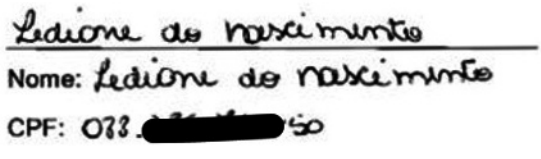 Ledione do nascimento
Nome: Ledione do nascimento
CPF: 033. 50